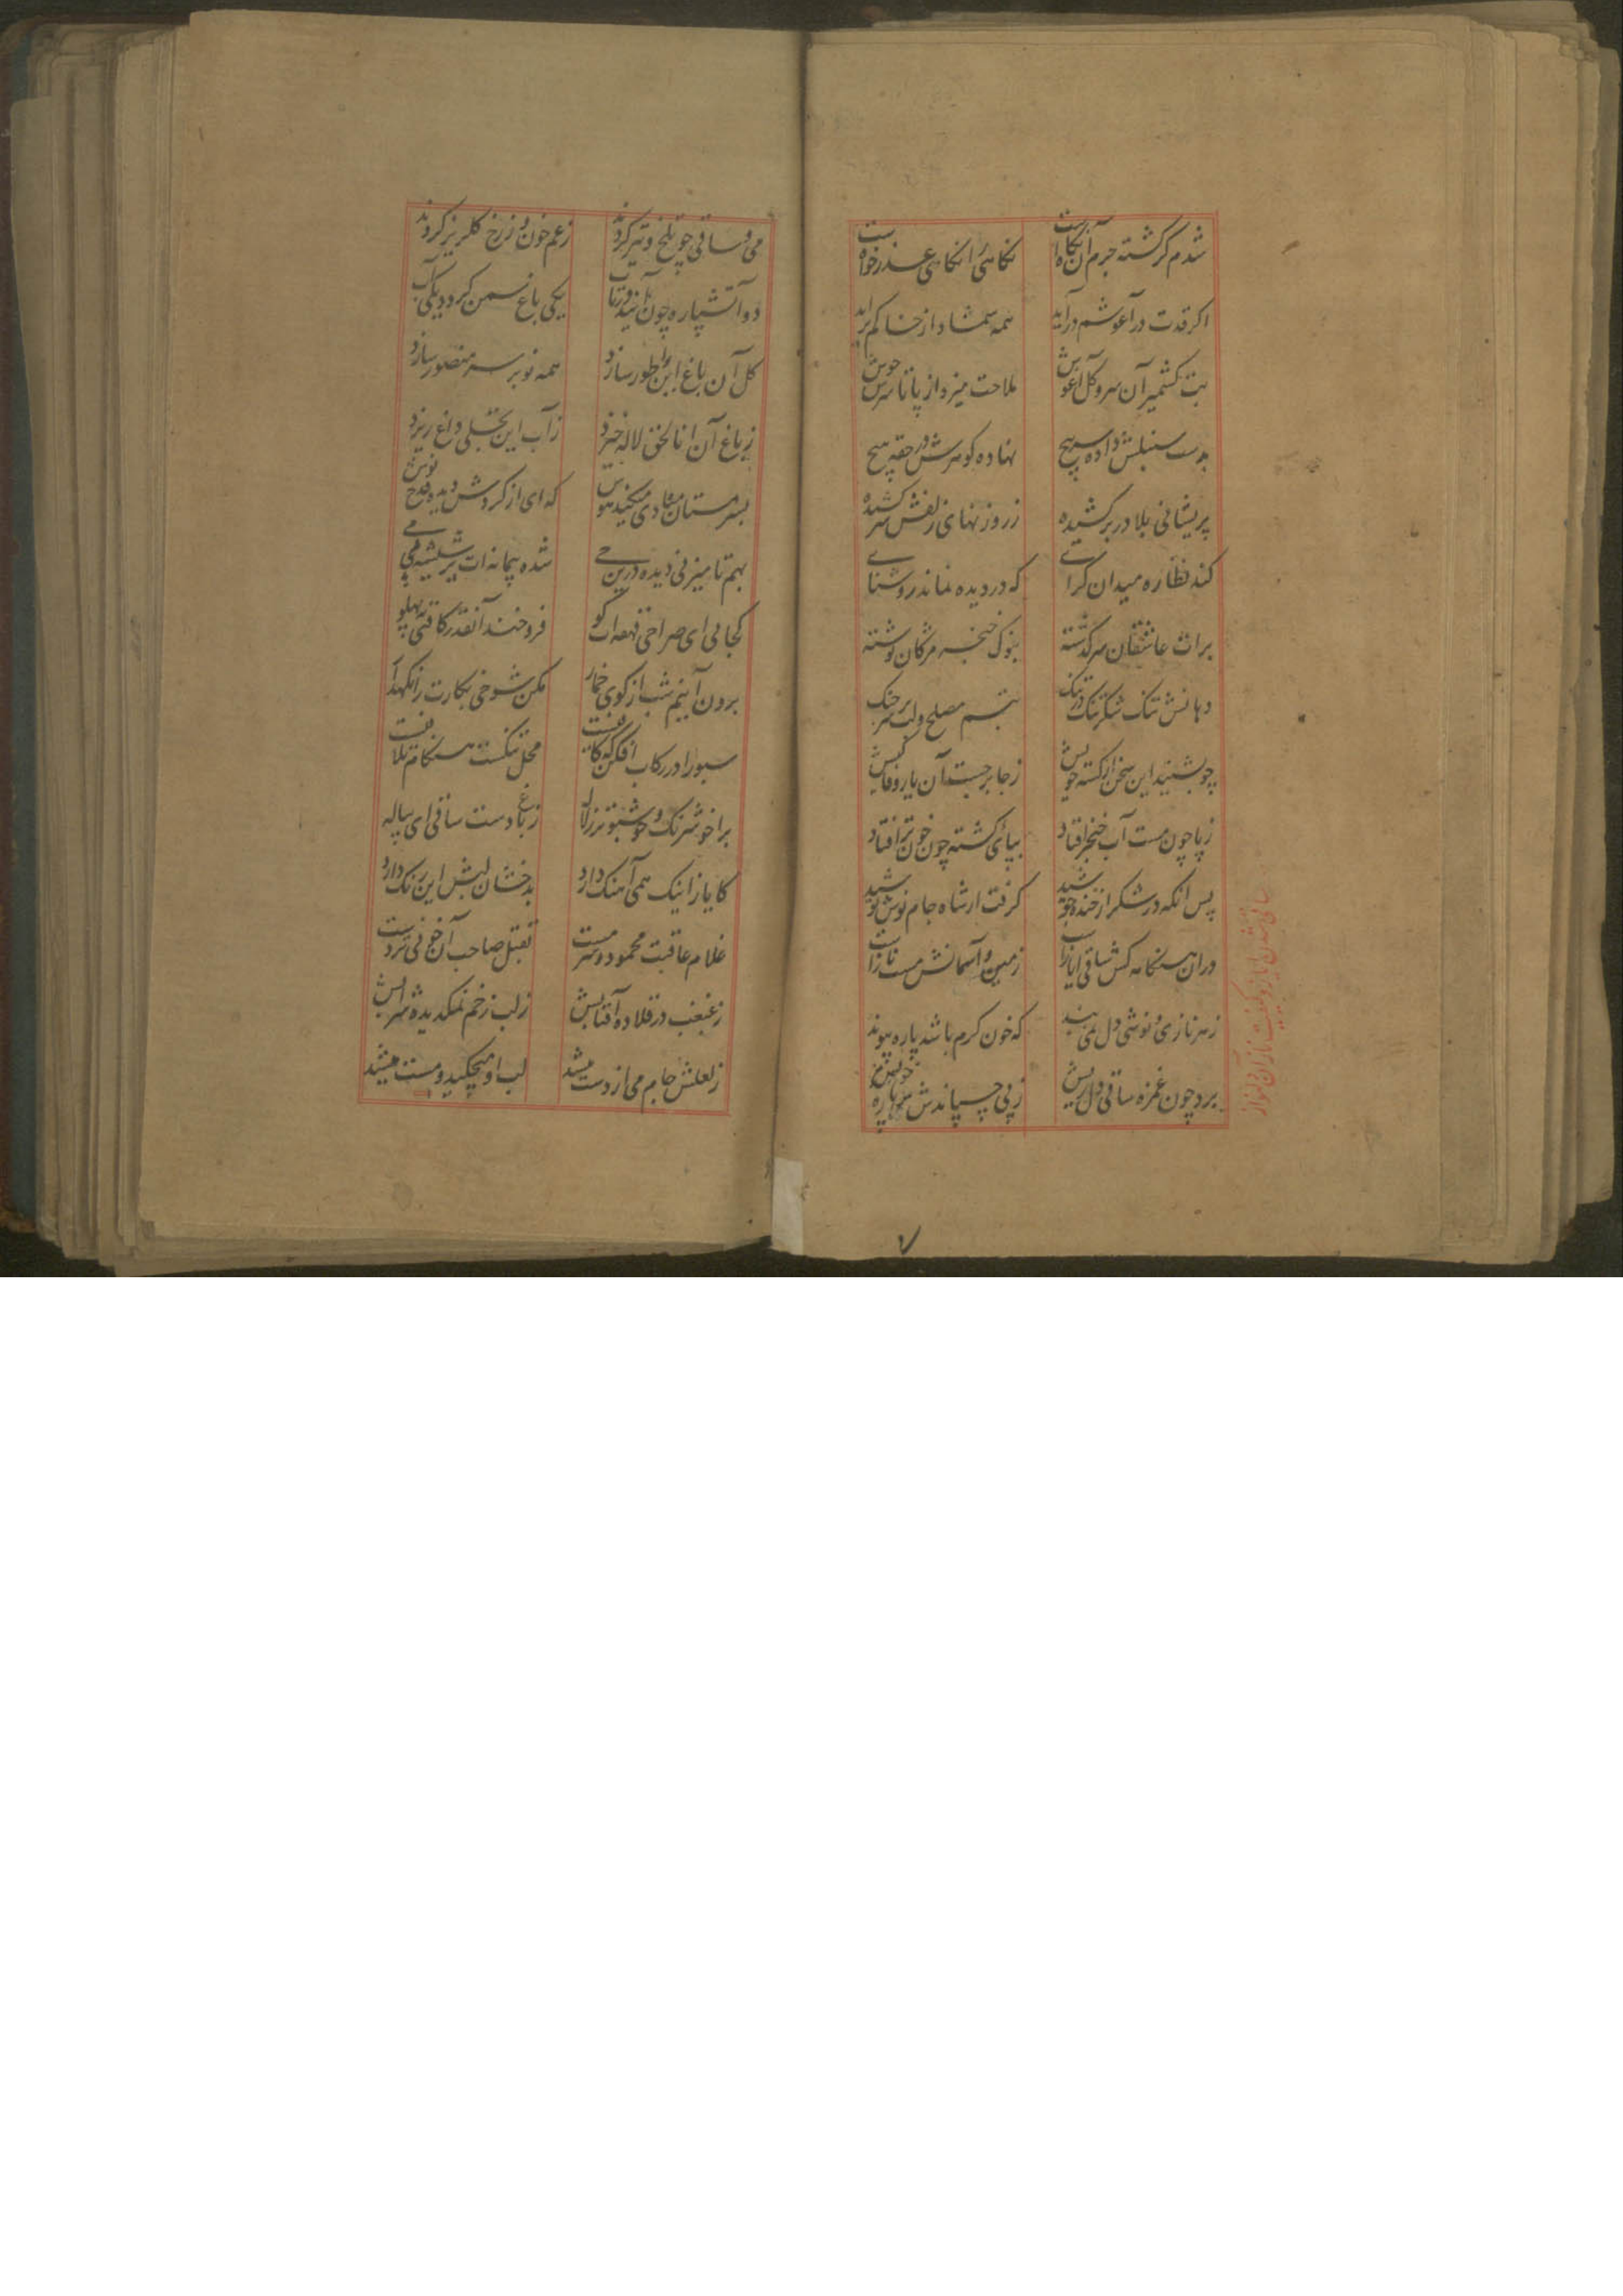 شدم گر کشته جرم آن نگاه است نگاهی را نگاهی عذر خواه است
اگر قدت در آغوشم در آید همه شمشاد از خاکم بر آید
بت کشمیر آن سرو گل آغوش ملاحت میزد از پا تا سرش جوش
بدست سنبلش داده سر پیچ نهاده گوهرش در حقه هیچ
پریشانی بلا در بر کشیده ز روزنهای زلفش سر کشیده
کند نظاره میدان گرائے که در دیده نماند روشنائے
برات عاشقان سر گذشته بنوک خنجر مژگان نوشته
دهانش تنگ شکر تنگ در تنگ تبسم مصلح و لب بر سر جنگ
چو بشنید این سخن از کشته خویش ز جا بر جست آن یار وفا کیش
ز پا چون مست آب خنجر افتاد بپای کشته چون خون تر افتاد
پس آنکه در شکر از خنده جوشید گرفت از شاه جام نوش نوشید
در آن هنگامه کش ساقی ایاز است زمین و آسمانش مست ناز است
که خون گرم باشد پاره پیوند
برد چون غمزه ساقی دل ریش
می و ساقی چو تلخ و تیز کردند زعم خون و زرخ گلریز کردند
دو آتشپاره چون
یکی باغ سمن گردد یکی آب
گل آن باغ این را طور سازد همه نوبر سر منصور سازد
ز باغ آن انا لحق لاله خیزد ز آب این تجلی داغ ریزد
که ای از گردش دیده قدح نوش
بهم تا میزنی دیده درین حے شده پیمانه ات پر شیشه می
کجائی ای صراحی قهقه ات کو فرو خند آنقدر کافتی به پهلو
برون آ نیم شب از کوی خمار مکن شوخی بکارت را نگهدار
سبو را در رکاب افکن که
براخوشرنگ و خوشبوتر ز لاله ز باغ دست ساقی ای پیاله
کایاز اینک همی آهنگ دارد بدخشان لبش این رنگ دارد
غلام عاقبت محمود سرمست بقتل صاحب آن خونی تردست
ز غبغب در قلاده آفتابش ز لب زخم نمکدیده شرابش
ز لعلش جام می از دست میشد لب او میچکید و مست میشد